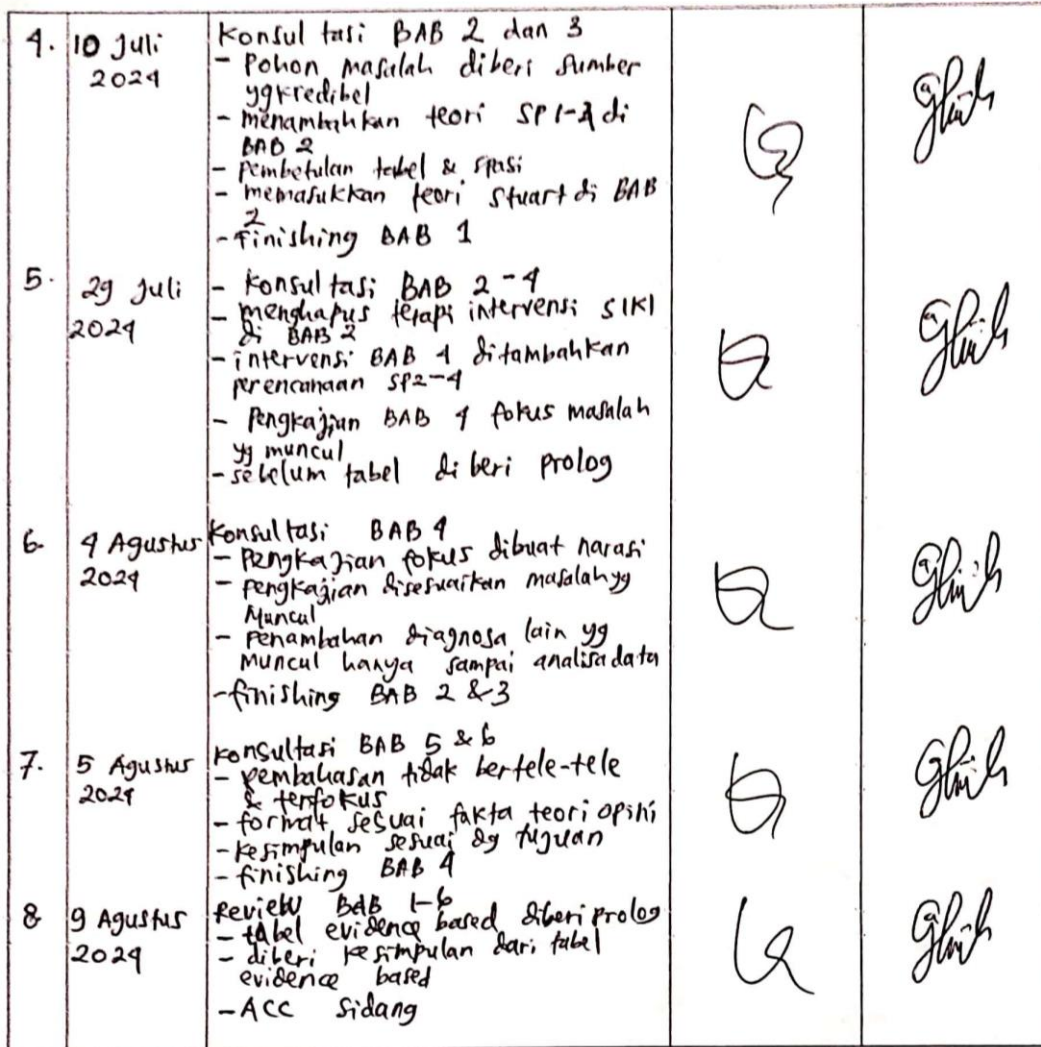 4. 10 Juli Konsultasi BAB 2 dan 3
2024 - Pohon masalah diberi sumber
yg kredibel
- menambahkan teori SP 1-4 di
BAB 2
- pembetulan tabel & spasi
- memasukkan teori Stuart di BAB
2
- Finishing BAB 1
5. 29 Juli - Konsultasi BAB 2-4
2024 - menghapus terapi intervensi SIKI
di BAB 2
- intervensi BAB 4 ditambahkan
perencanaan SP2-4
- Pengkajian BAB 4 fokus masalah
yg muncul
- sebelum tabel diberi prolog
6. 4 Agustus Konsultasi BAB 4
2024 - Pengkajian fokus dibuat narasi
- pengkajian disesuaikan masalah yg
Muncul
- Penambahan diagnosa lain yg
muncul hanya sampai analisa data
- finishing BAB 2 & 3
7. 5 Agustus Konsultasi BAB 5 & 6
2024 - pembahasan tidak bertele-tele
& terfokus
- format sesuai fakta teori opini
- kesimpulan sesuai dg tujuan
- finishing BAB 4
8 9 Agustus Review BAB 1-6
2024 - tabel evidence based diberi prolog
- diberi kesimpulan dari tabel
evidence based
- ACC Sidang